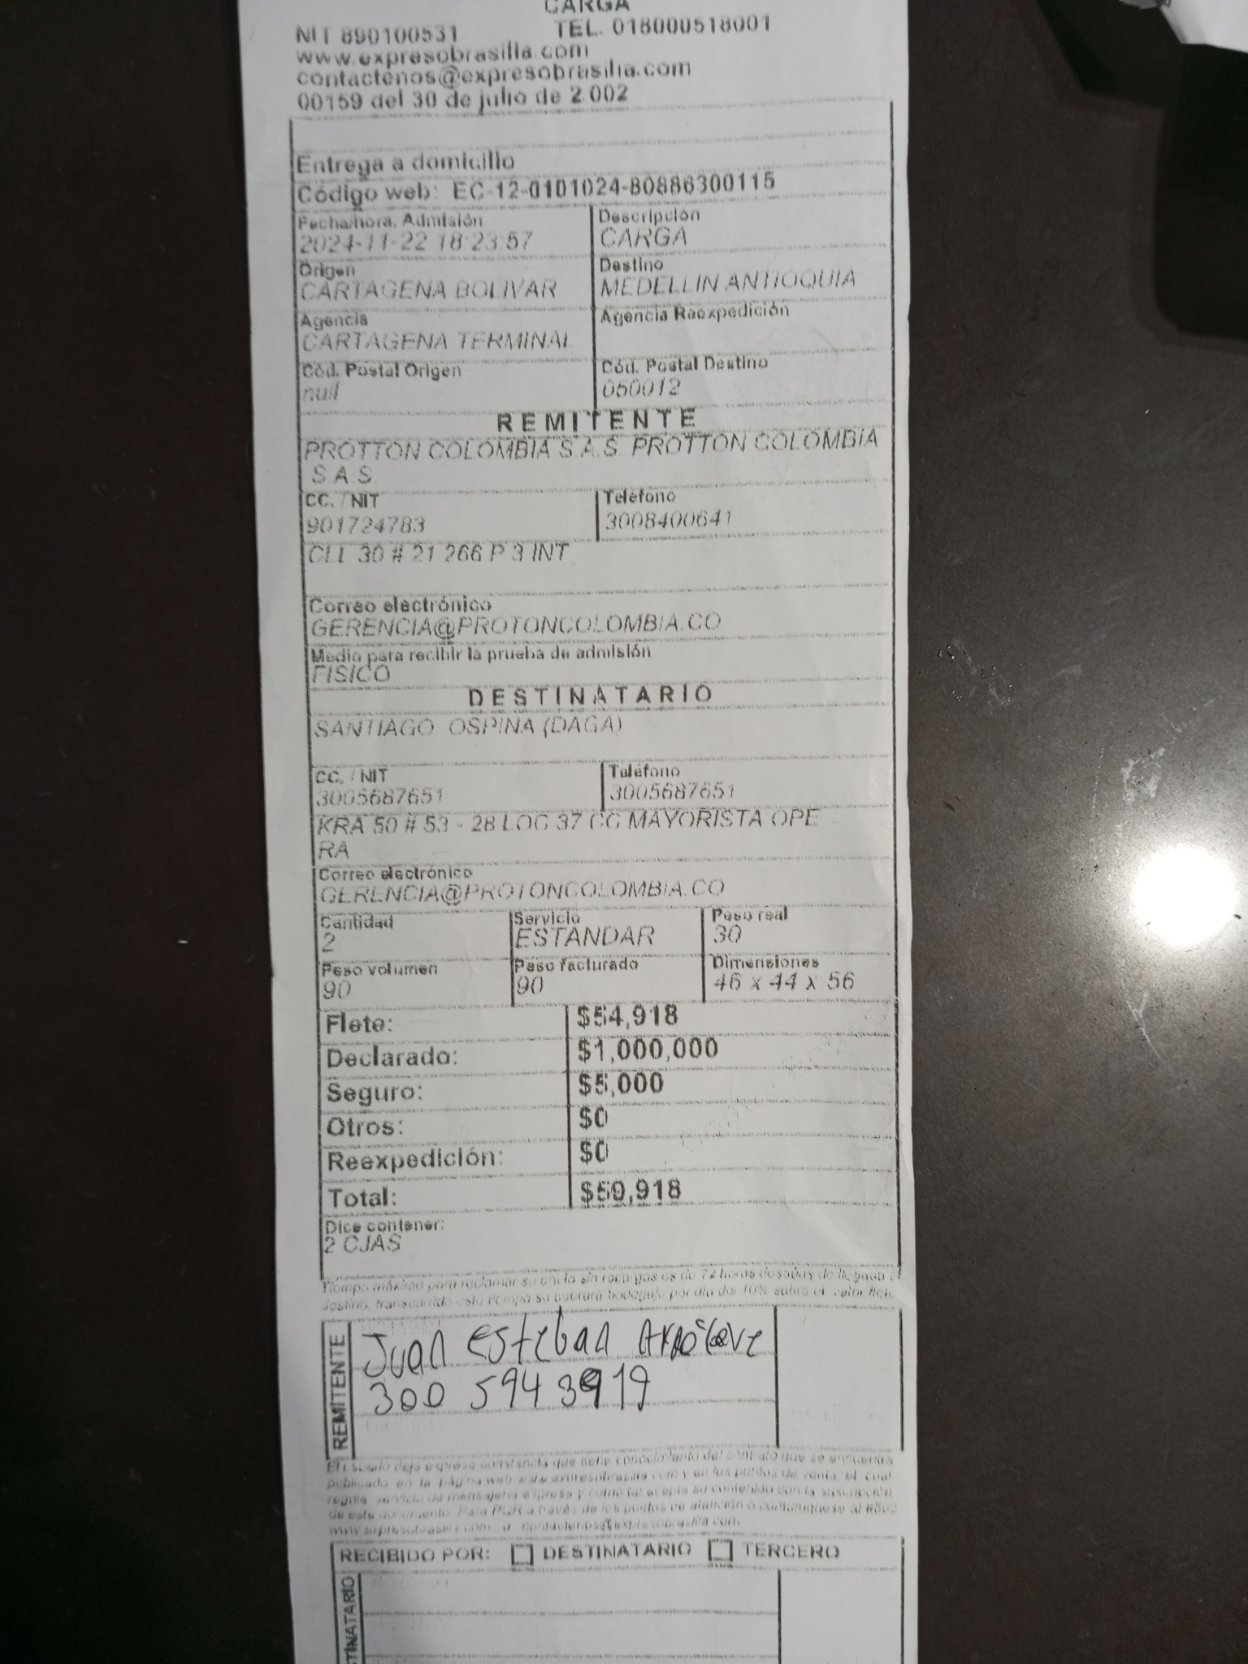 CARGA
NIT 890100531 TEL. 018000518001
www.expresobrasilia.com
contactenos@expresobrasilia.com
00159 del 30 de julio de 2.002
Entrega a domicilio
Código web: EC-12-0101024-80886300115
Fecha/hora. Admisión Descripción
2024-11-22 18:23:57 CARGA
Origen Destino
CARTAGENA BOLIVAR MEDELLIN ANTIOQUIA
Agencia Agencia Reexpedición
CARTAGENA TERMINAL
Cód. Postal Origen Cód. Postal Destino
null 050012
REMITENTE
PROTTON COLOMBIA S.A.S PROTTON COLOMBIA
S.A.S.
CC. / NIT Teléfono
901724783 3008400641
CLL 30 # 21 266 P 3 INT
Correo electrónico
GERENCIA@PROTONCOLOMBIA.CO
Medio para recibir la prueba de admisión
FISICO
DESTINATARIO
SANTIAGO OSPINA (DAGA)
CC. / NIT Teléfono
3005687651 3005687651
KRA 50 # 53 - 28 LOC 37 CC MAYORISTA OPE
RA
Correo electrónico
GERENCIA@PROTONCOLOMBIA.CO
Cantidad Servicio Peso real
2 ESTANDAR 30
Peso volumen Peso facturado Dimensiones
90 90 46 x 44 x 56
Flete: $54,918
Declarado: $1,000,000
Seguro: $5,000
Otros: $0
Reexpedición: $0
Total: $59,918
Dice contener:
2 CJAS
Tiempo máximo para reclamar su envío sin recargos es de 72 horas después de llegado a
destino, transcurrido este tiempo se cobrará bodegaje por día del 10% sobre el valor flete.
REMITENTE
Juan esteban
300 594 3919
El usuario deja expresa constancia que tiene conocimiento del contrato que se encuentra
publicado en la página web www.expresobrasilia.com y en los puntos de venta, el cual
regula servicio de mensajería expresa y como tal acepta su contenido con la suscripción
de este documento. Para PQR a través de los puntos de atención o comuníquese al
www.expresobrasilia.com o contactenos@expresobrasilia.com
RECIBIDO POR: DESTINATARIO TERCERO
STINATARIO